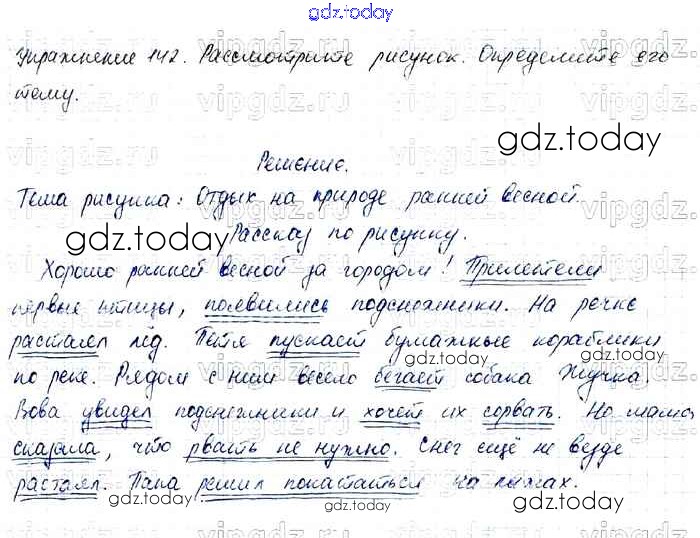 gdz.today
Упражнение 142. Рассмотрите рисунок. Определите его
тему.
vipgdz.ru
gdz.today
Решение.
Тема рисунка: Отдых на природе ранней весной.
gdz.today
Рассказ по рисунку.
Хорошо ранней весной за городом! Прилетели
первые птицы, появились подснежники. На речке
растаял лёд. Петя пускает бумажные кораблики
gdz.today
по реке. Рядом с ним весело бегает собака Жучка.
Вова увидел подснежники и хочет их сорвать. Но мама
сказала, что рвать не нужно. Снег ещё не везде
gdz.today
растаял. Папа решил покататься на лыжах.
gdz.today